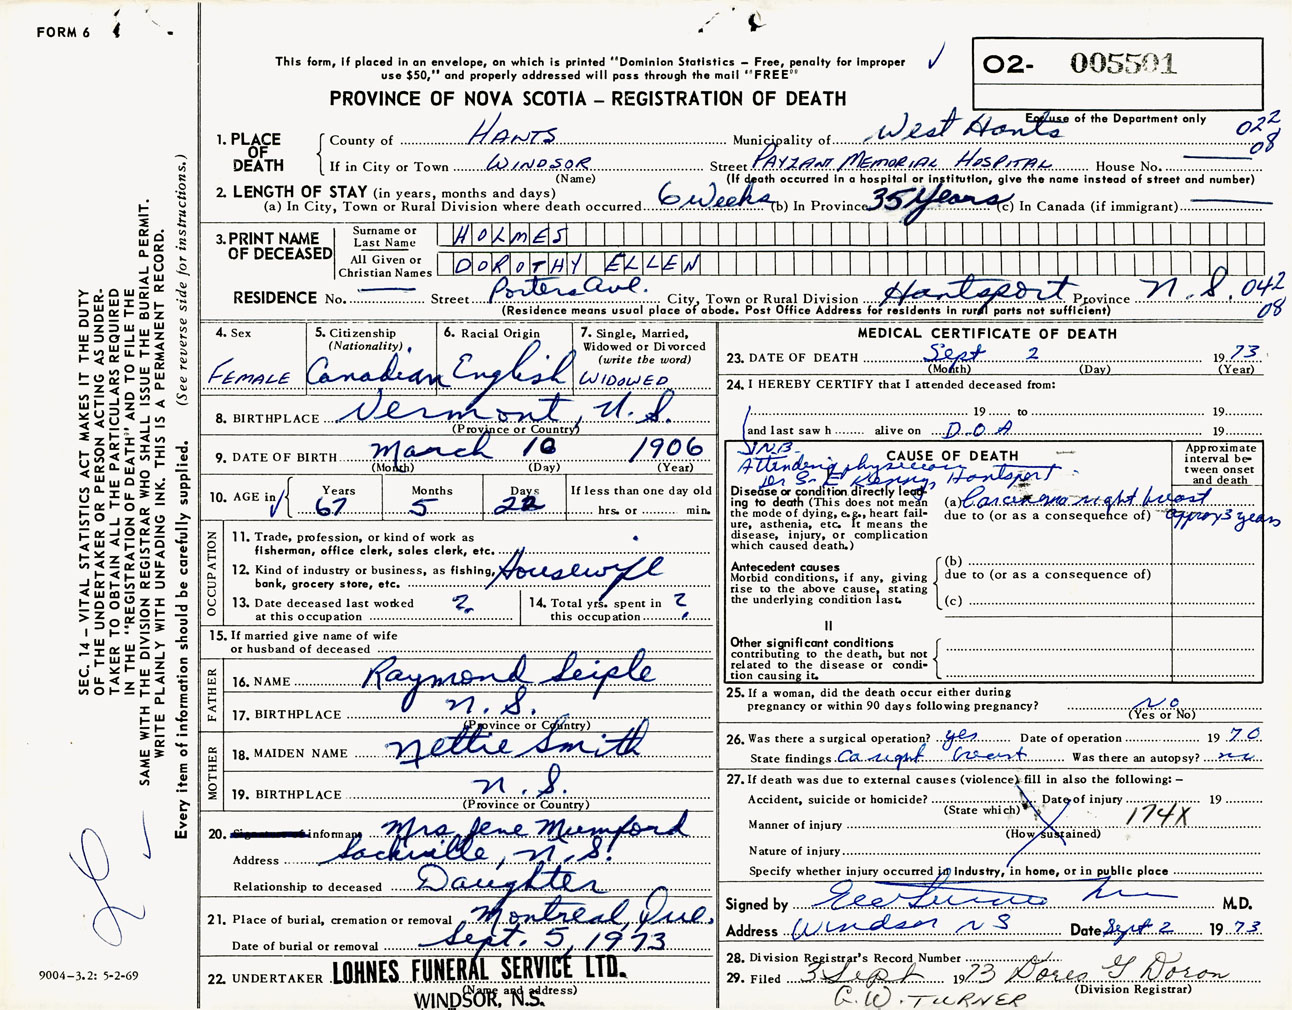 FORM 6
This form, if placed in an envelope, on which is printed "Dominion Statistics – Free, penalty for improper
use $50," and properly addressed will pass through the mail "FREE"
PROVINCE OF NOVA SCOTIA – REGISTRATION OF DEATH
02- 005501
For use of the Department only
022
08
1. PLACE OF DEATH
County of HANTS Municipality of West Hants
If in City or Town WINDSOR Street PAYZANT MEMORIAL HOSPITAL House No.
(Name) (If death occurred in a hospital or institution, give the name instead of street and number)
2. LENGTH OF STAY (in years, months and days)
(a) In City, Town or Rural Division where death occurred 6 Weeks (b) In Province 35 Years (c) In Canada (if immigrant)
3. PRINT NAME OF DECEASED
Surname or Last Name HOLMES
All Given or Christian Names DOROTHY ELLEN
RESIDENCE No. Street Porters Ave. City, Town or Rural Division Hantsport Province N.S. 042
08
(Residence means usual place of abode. Post Office Address for residents in rural parts not sufficient)
4. Sex
FEMALE
5. Citizenship
(Nationality)
Canadian
6. Racial Origin
English
7. Single, Married,
Widowed or Divorced
(write the word)
WIDOWED
8. BIRTHPLACE Vermont, U.S.
(Province or Country)
9. DATE OF BIRTH March 10 1906
(Month) (Day) (Year)
10. AGE in Years Months Days If less than one day old
67 5 22 hrs. or min.
OCCUPATION
11. Trade, profession, or kind of work as
fisherman, office clerk, sales clerk, etc.
12. Kind of industry or business, as fishing,
bank, grocery store, etc. Housewife
13. Date deceased last worked
at this occupation ?
14. Total yrs. spent in
this occupation ?
15. If married give name of wife
or husband of deceased
FATHER
16. NAME Raymond Seiple
17. BIRTHPLACE N.S.
(Province or Country)
MOTHER
18. MAIDEN NAME Nettie Smith
19. BIRTHPLACE N.S.
(Province or Country)
20. Signature of informant Mrs Jene Mumford
Address Sackville, N.S.
Relationship to deceased Daughter
21. Place of burial, cremation or removal Montreal, Que.
Date of burial or removal Sept. 5, 1973
22. UNDERTAKER LOHNES FUNERAL SERVICE LTD.
(Name and address)
WINDSOR, N.S.
MEDICAL CERTIFICATE OF DEATH
23. DATE OF DEATH Sept 2 1973
(Month) (Day) (Year)
24. I HEREBY CERTIFY that I attended deceased from:
19 to 19
and last saw h alive on D.O.A 19
N.B.
Attending physician
Dr S. E. Kenny, Hantsport
CAUSE OF DEATH
Approximate
interval be-
tween onset
and death
Disease or condition directly lead-
ing to death (This does not mean
the mode of dying, e.g., heart fail-
ure, asthenia, etc. It means the
disease, injury, or complication
which caused death.)
(a) Carcinoma right breast
due to (or as a consequence of) approx 3 years
Antecedent causes
Morbid conditions, if any, giving
rise to the above cause, stating
the underlying condition last.
(b)
due to (or as a consequence of)
(c)
II
Other significant conditions
contributing to the death, but not
related to the disease or condi-
tion causing it.
25. If a woman, did the death occur either during
pregnancy or within 90 days following pregnancy? NO
(Yes or No)
26. Was there a surgical operation? yes Date of operation 1970
State findings Ca right breast Was there an autopsy? no
27. If death was due to external causes (violence) fill in also the following: –
Accident, suicide or homicide? Date of injury 19
(State which)
Manner of injury 174X
(How sustained)
Nature of injury
Specify whether injury occurred in industry, in home, or in public place
Signed by M.D.
Address Windsor NS Date Sept 2 1973
28. Division Registrar's Record Number
29. Filed 3 Sept 1973 Dores G Doron
(Division Registrar)
G.W. TURNER
SEC. 14 – VITAL STATISTICS ACT MAKES IT THE DUTY
OF THE UNDERTAKER OR PERSON ACTING AS UNDER-
TAKER TO OBTAIN ALL THE PARTICULARS REQUIRED
IN THE "REGISTRATION OF DEATH" AND TO FILE THE
SAME WITH THE DIVISION REGISTRAR WHO SHALL ISSUE THE BURIAL PERMIT.
WRITE PLAINLY WITH UNFADING INK. THIS IS A PERMANENT RECORD.
Every item of information should be carefully supplied. (See reverse side for instructions.)
9004-3.2: 5-2-69